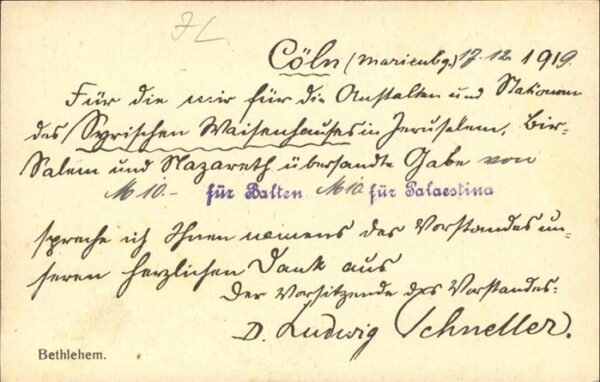 JL
Cöln (Marienbg.) 17.12.1919.
Für die mir für die Anstalten und Stationen
des Syrischen Waisenhauses in Jerusalem, Bir-
Salem und Nazareth übersandte Gabe von
M 10.- für Balten M 10 für Palaestina
spreche ich Ihnen namens des Vorstandes un=
seren herzlichen Dank aus
Der Vorsitzende des Vorstandes:
D. Ludwig Schneller.
Bethlehem.